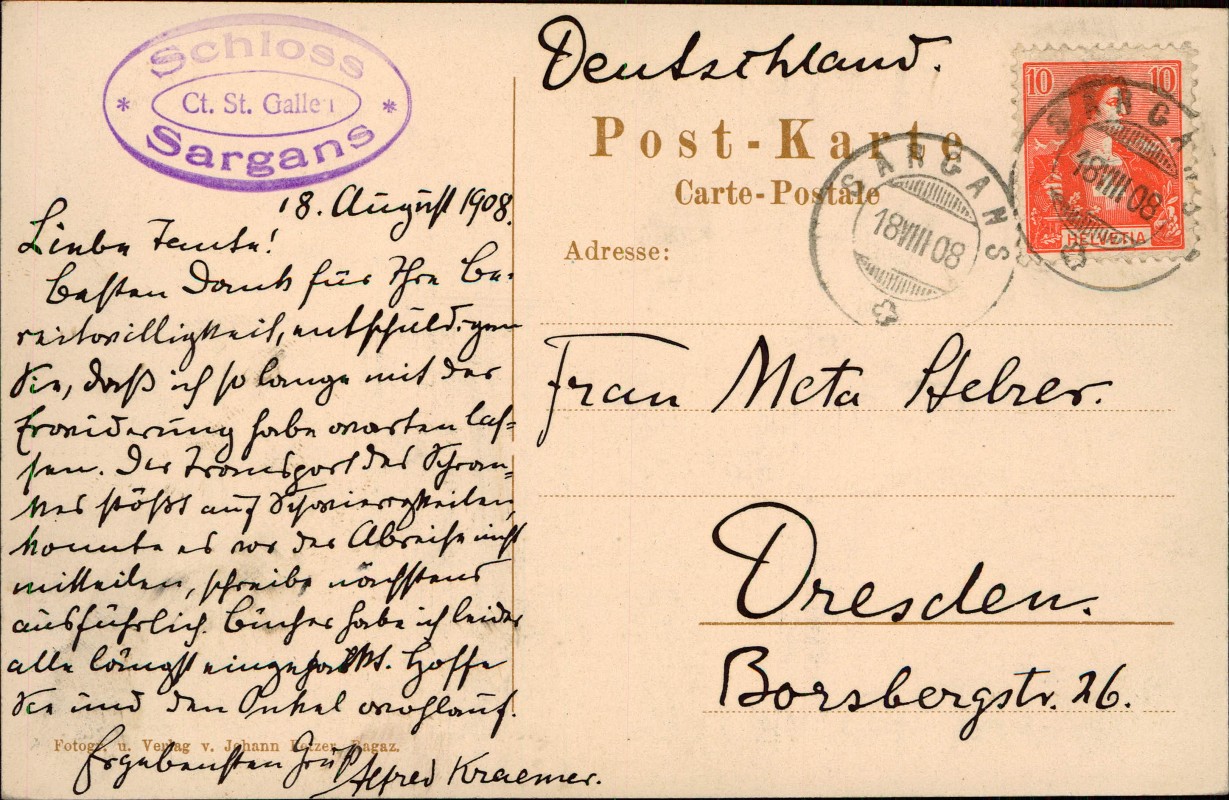 Schloss
Ct. St. Gallen
Sargans
18. August 1908.
Liebe Tante!
Besten Dank für Ihre Be-
reitwilligkeit, entschuldigen
Sie, daß ich so lange mit der
Erwiderung habe warten las-
sen. Der Transport des Schran-
kes stößt auf Schwierigkeiten,
konnte es vor der Abreise nicht
mitteilen, schreibe nächstens
ausführlich. Bücher habe ich leider
alle längst eingepackt. Hoffe
Sie und den Onkel wohlauf.
Ergebensten Gruß
Alfred Kraemer.
Fotogr. u. Verlag v. Johann Ragaz.
Deutschland.
Post-Karte
Carte-Postale
Adresse:
10 10
HELVETIA
SARGANS
18 VIII 08
SARGANS
18 VIII 08
Frau Meta
Dresden.
Borsbergstr. 26.